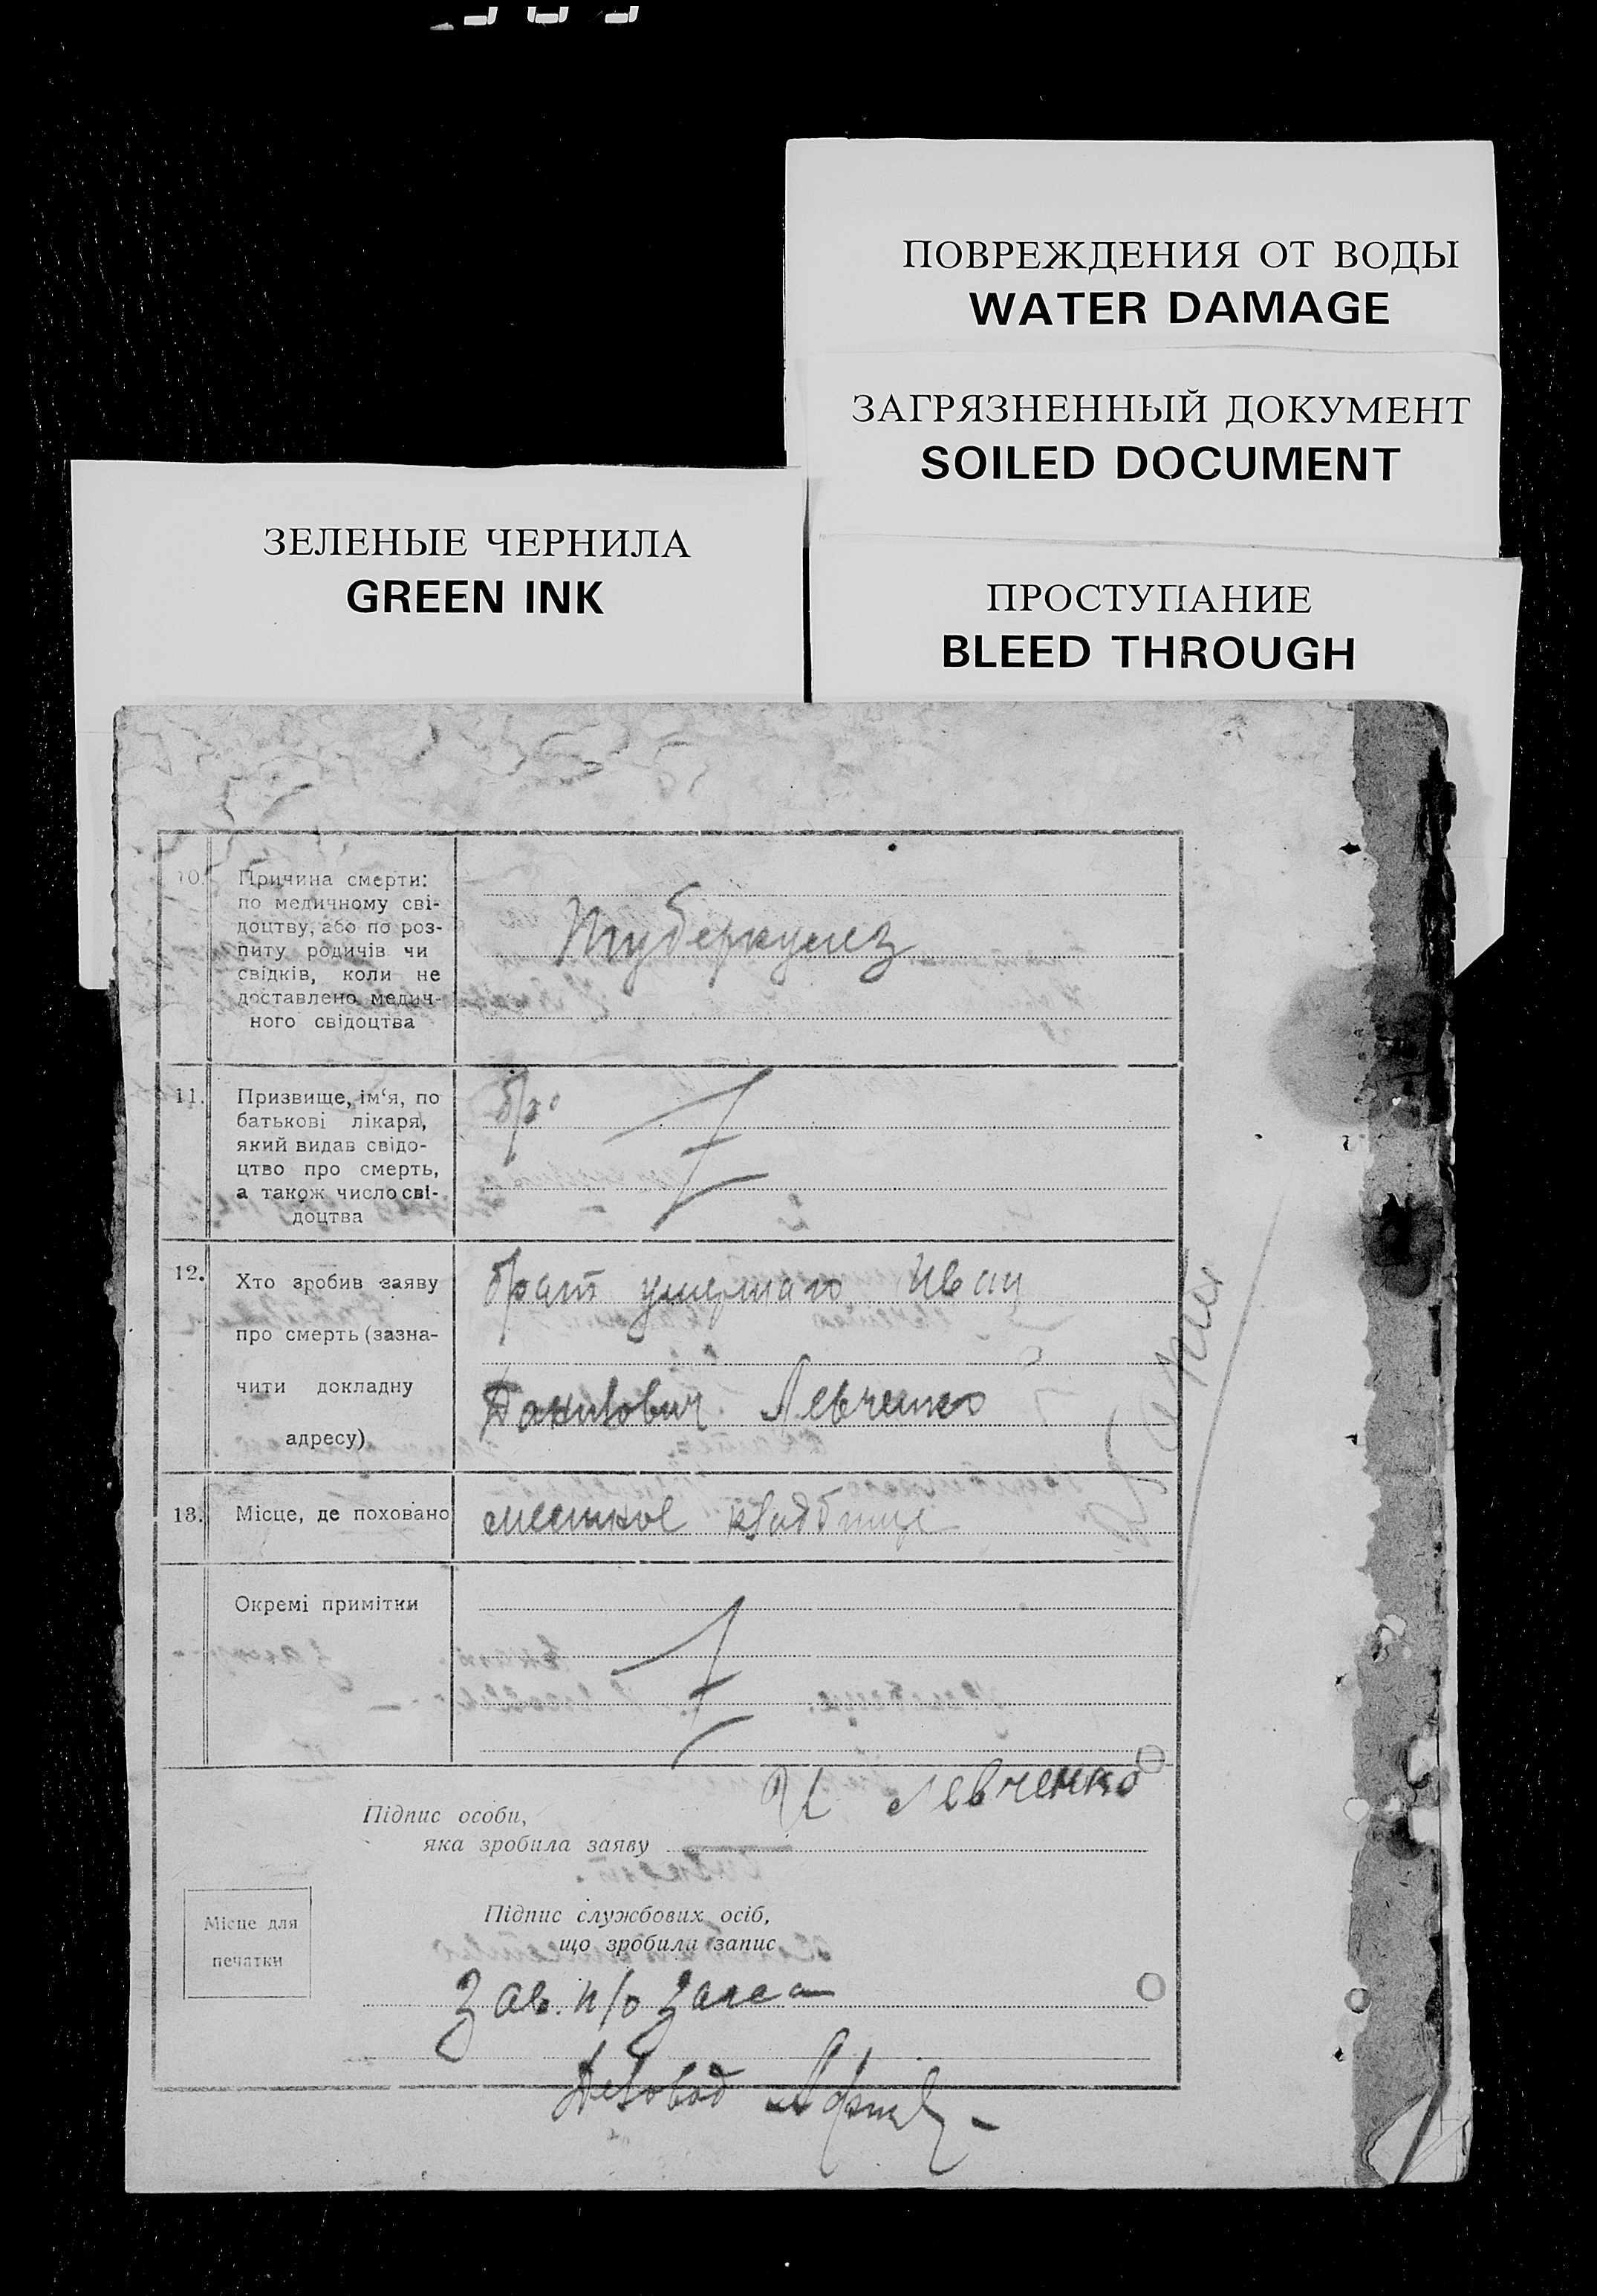 ПОВРЕЖДЕНИЯ ОТ ВОДЫ
WATER DAMAGE
ЗАГРЯЗНЕННЫЙ ДОКУМЕНТ
SOILED DOCUMENT
ЗЕЛЕНЫЕ ЧЕРНИЛА
GREEN INK
ПРОСТУПАНИЕ
BLEED THROUGH
10. Причина смерти:
по медичному сві-
доцтву, або по роз-
питу родичів чи
свідків, коли не
доставлено медич-
ного свідоцтва
Туберкулез
11. Призвище, ім‘я, по
батькові лікаря,
який видав свідо-
цтво про смерть,
а також число сві-
доцтва
12. Хто зробив заяву
про смерть (зазна-
чити докладну
адресу)
брат умершаго Иван
Данилович Левченко
13. Місце, де поховано
местное кладбище
Окремі примітки
Підпис особи,
яка зробила заяву
И Левченко
Місце для
печатки
Підпис службових осіб,
що зробили запис
Зав. п/о Загса
Деловод